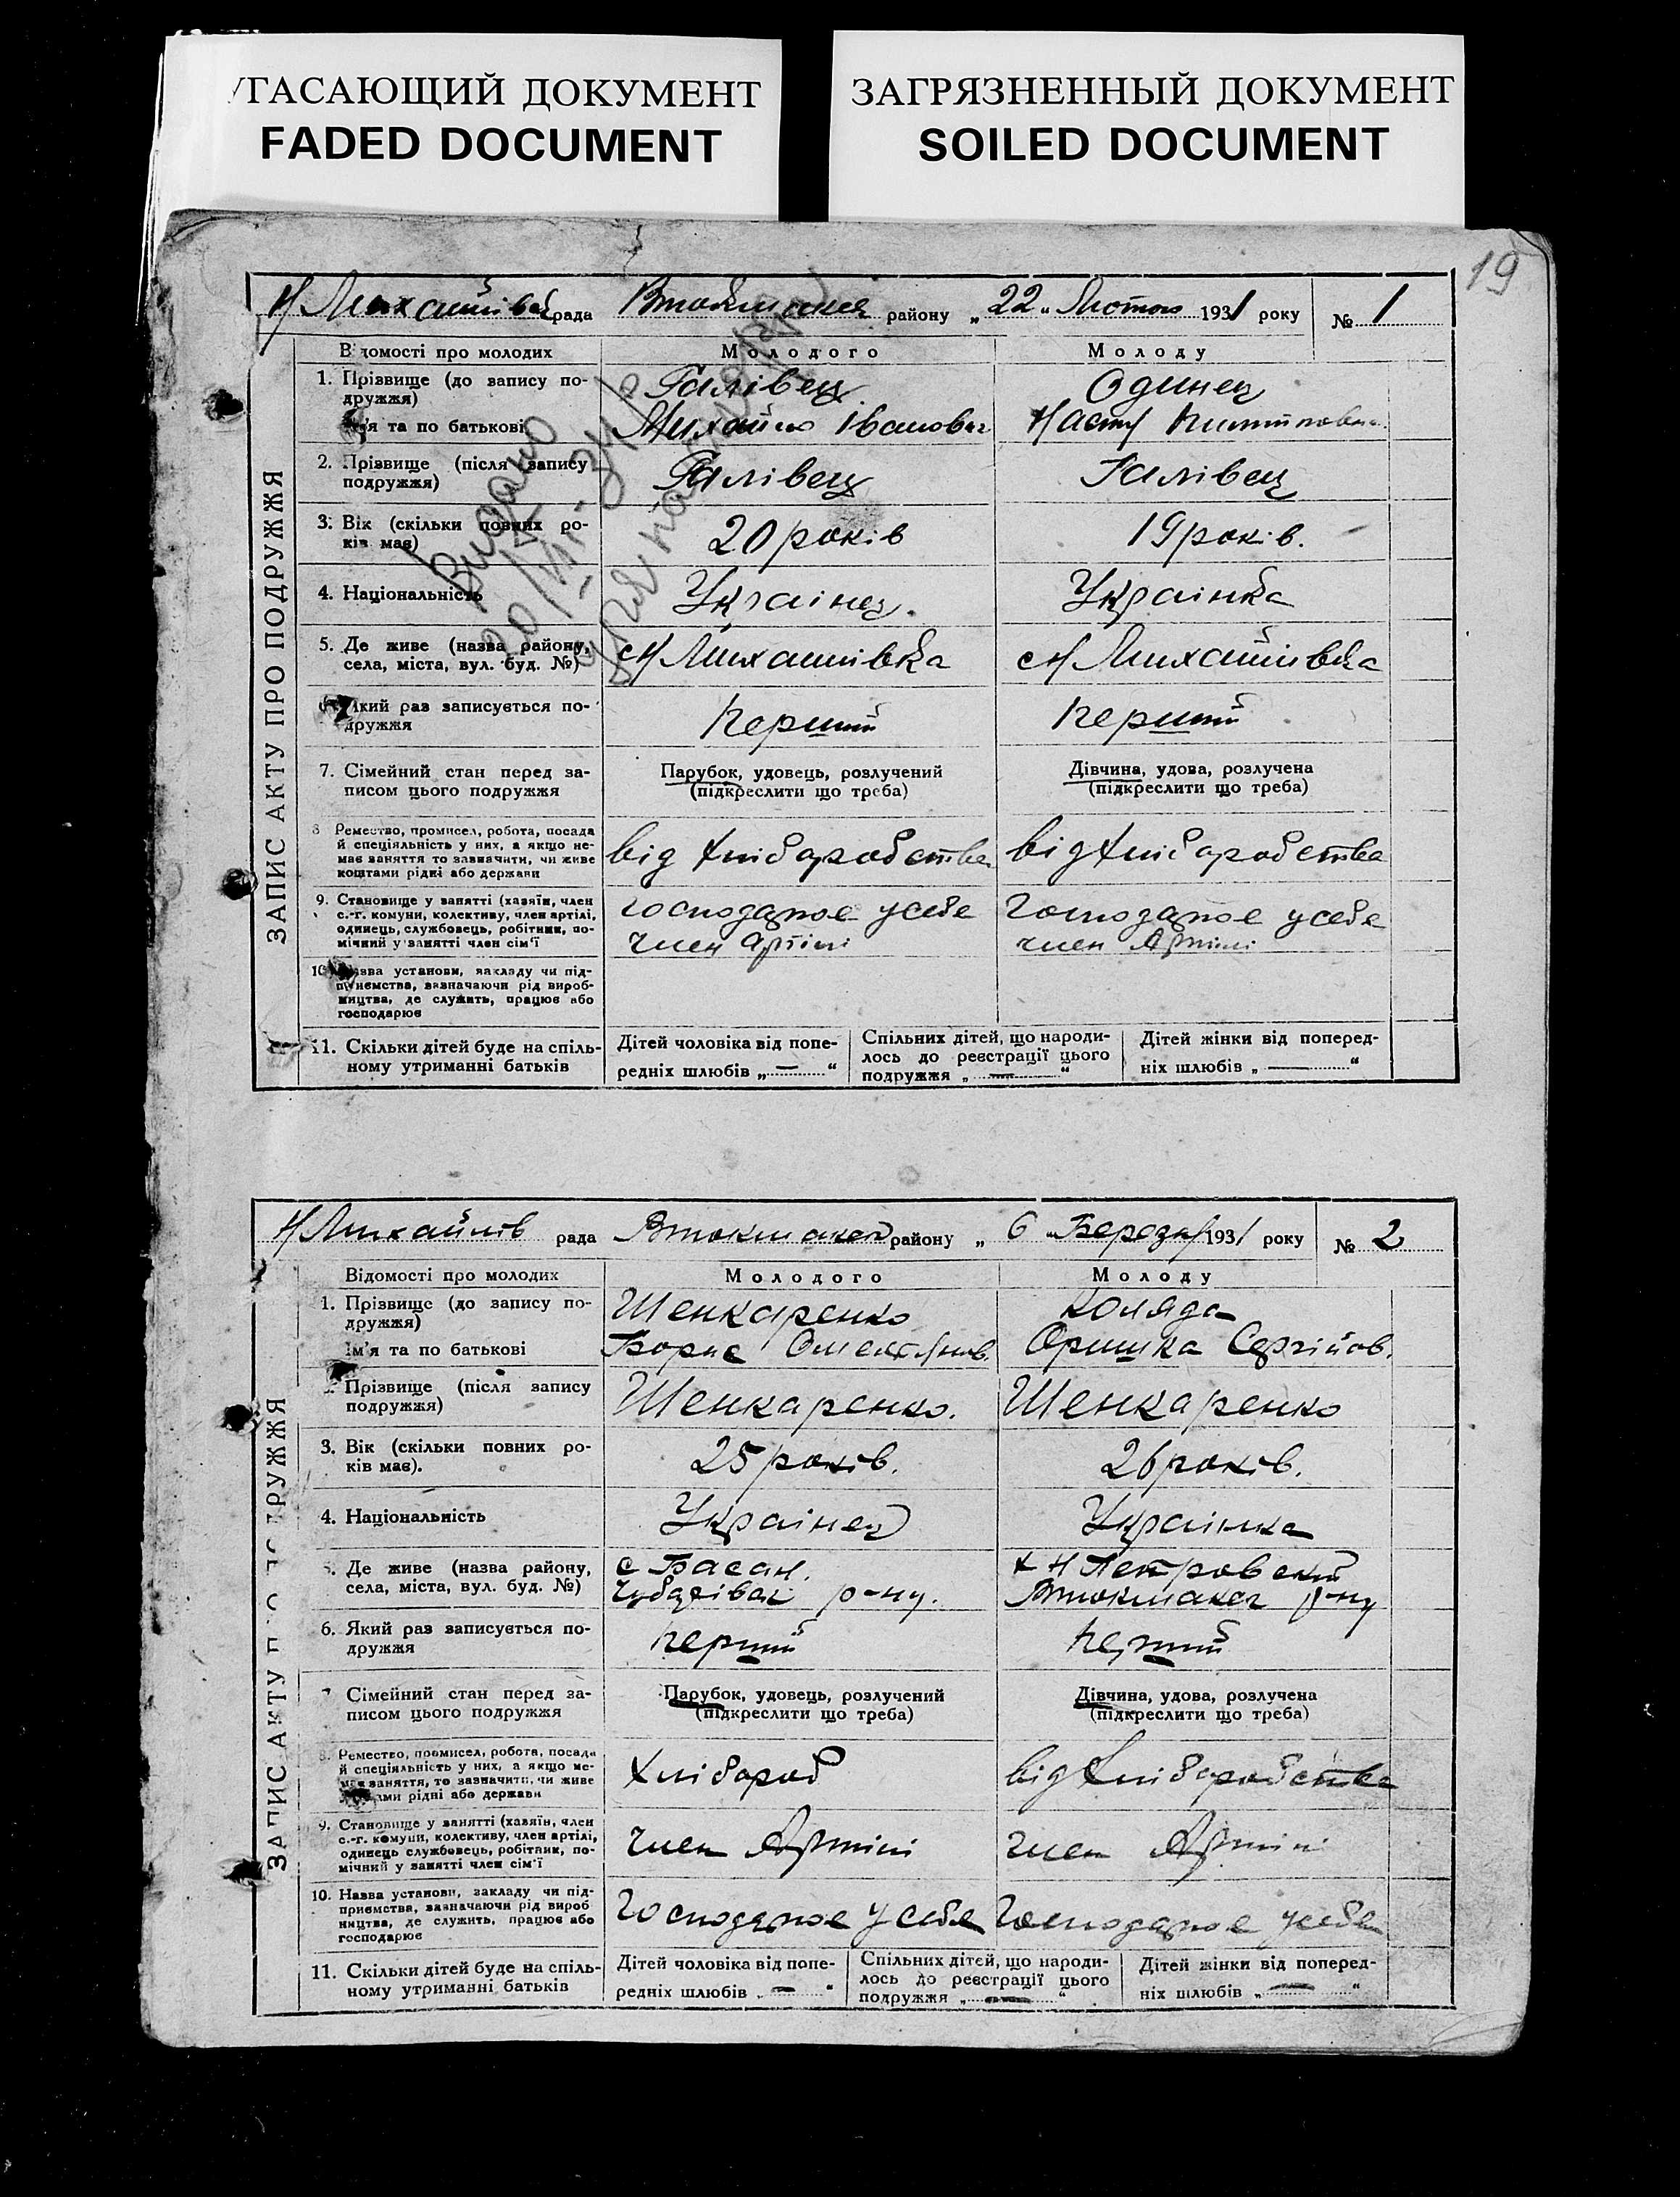 УГАСАЮЩИЙ ДОКУМЕНТ
FADED DOCUMENT
ЗАГРЯЗНЕННЫЙ ДОКУМЕНТ
SOILED DOCUMENT
19
Н Михайлівск рада Втокмакск району „22" Лютого 1931 року № 1
ЗАПИС АКТУ ПРО ПОДРУЖЖЯ
Видано
Відомості про молодих Молодого Молоду
1. Прізвище (до запису по-дружжя) Галівец Одинец
Ім'я та по батькові Михайло Іванович Настя
2. Прізвище (після запису подружжя) Галівец Галівец
3. Вік (скільки повних ро-ків має) 20 років 19 років.
4. Національність Українец. Українка
5. Де живе (назва району, села, міста, вул. буд. №) с Н Михайлівка с Н Михайлівка
6. Який раз записується по-дружжя Перший Перший
7. Сімейний стан перед за-писом цього подружжя Парубок, удовець, розлучений (підкреслити що треба) Дівчина, удова, розлучена (підкреслити що треба)
8. Ремество, промисел, робота, посада й спеціяльність у них, а якщо не-має заняття то зазначити, чи живе коштами рідні або держави від хліборобства від хліборобства
9. Становище у занятті (хазяїн, член с.-г. комуни, колективу, член артілі, одинець, службовець, робітник, по-мічний у занятті член сім'ї Господарює у себе член артілі Господарює у себе член Артілі
10. Назва установи, закладу чи під-приємства, зазначаючи рід вироб-ництва, де служить, працює або господарює
11. Скільки дітей буде на спіль-ному утриманні батьків Дітей чоловіка від попе-редніх шлюбів „—" Спільних дітей, що народи-лось до реєстрації цього подружжя „—" Дітей жінки від поперед-ніх шлюбів „—"
Н Михайлів рада Втокмакск району „6" Березня 1931 року № 2
ЗАПИС АКТУ ПРО ПОДРУЖЖЯ
Відомості про молодих Молодого Молоду
1. Прізвище (до запису по-дружжя) Шенкаренко Коляда
Ім'я та по батькові Борис Омелянов. Оришка Сергійов.
2. Прізвище (після запису подружжя) Шенкаренко. Шенкаренко
3. Вік (скільки повних ро-ків має). 25 років. 26 років.
4. Національність Українец Українка
5. Де живе (назва району, села, міста, вул. буд. №) с Басан. Чубарівск р-ну. х Н Петровский Втокмакск р-ну
6. Який раз записується по-дружжя перший перший
7 Сімейний стан перед за-писом цього подружжя Парубок, удовець, розлучений (підкреслити що треба) Дівчина, удова, розлучена (підкреслити що треба)
8. Ремество, промисел, робота, посада й спеціяльність у них, а якщо не-має заняття, то зазначити, чи живе коштами рідні або держави хлібороб від хліборобства
9. Становище у занятті (хазяїн, член с.-г. комуни, колективу, член артілі, одинець службовець, робітник, по-мічний у занятті член сім'ї член Артілі член Артілі
10. Назва установи, закладу чи під-приємства, зазначаючи рід вироб ництва, де служить, працює або господарює Господарює у себе Господарює у себе
11. Скільки дітей буде на спіль-ному утриманні батьків Дітей чоловіка від попе-редніх шлюбів „—" Спільних дітей, що народи-лось до реєстрації цього подружжя „—" Дітей жінки від поперед-ніх шлюбів „—"